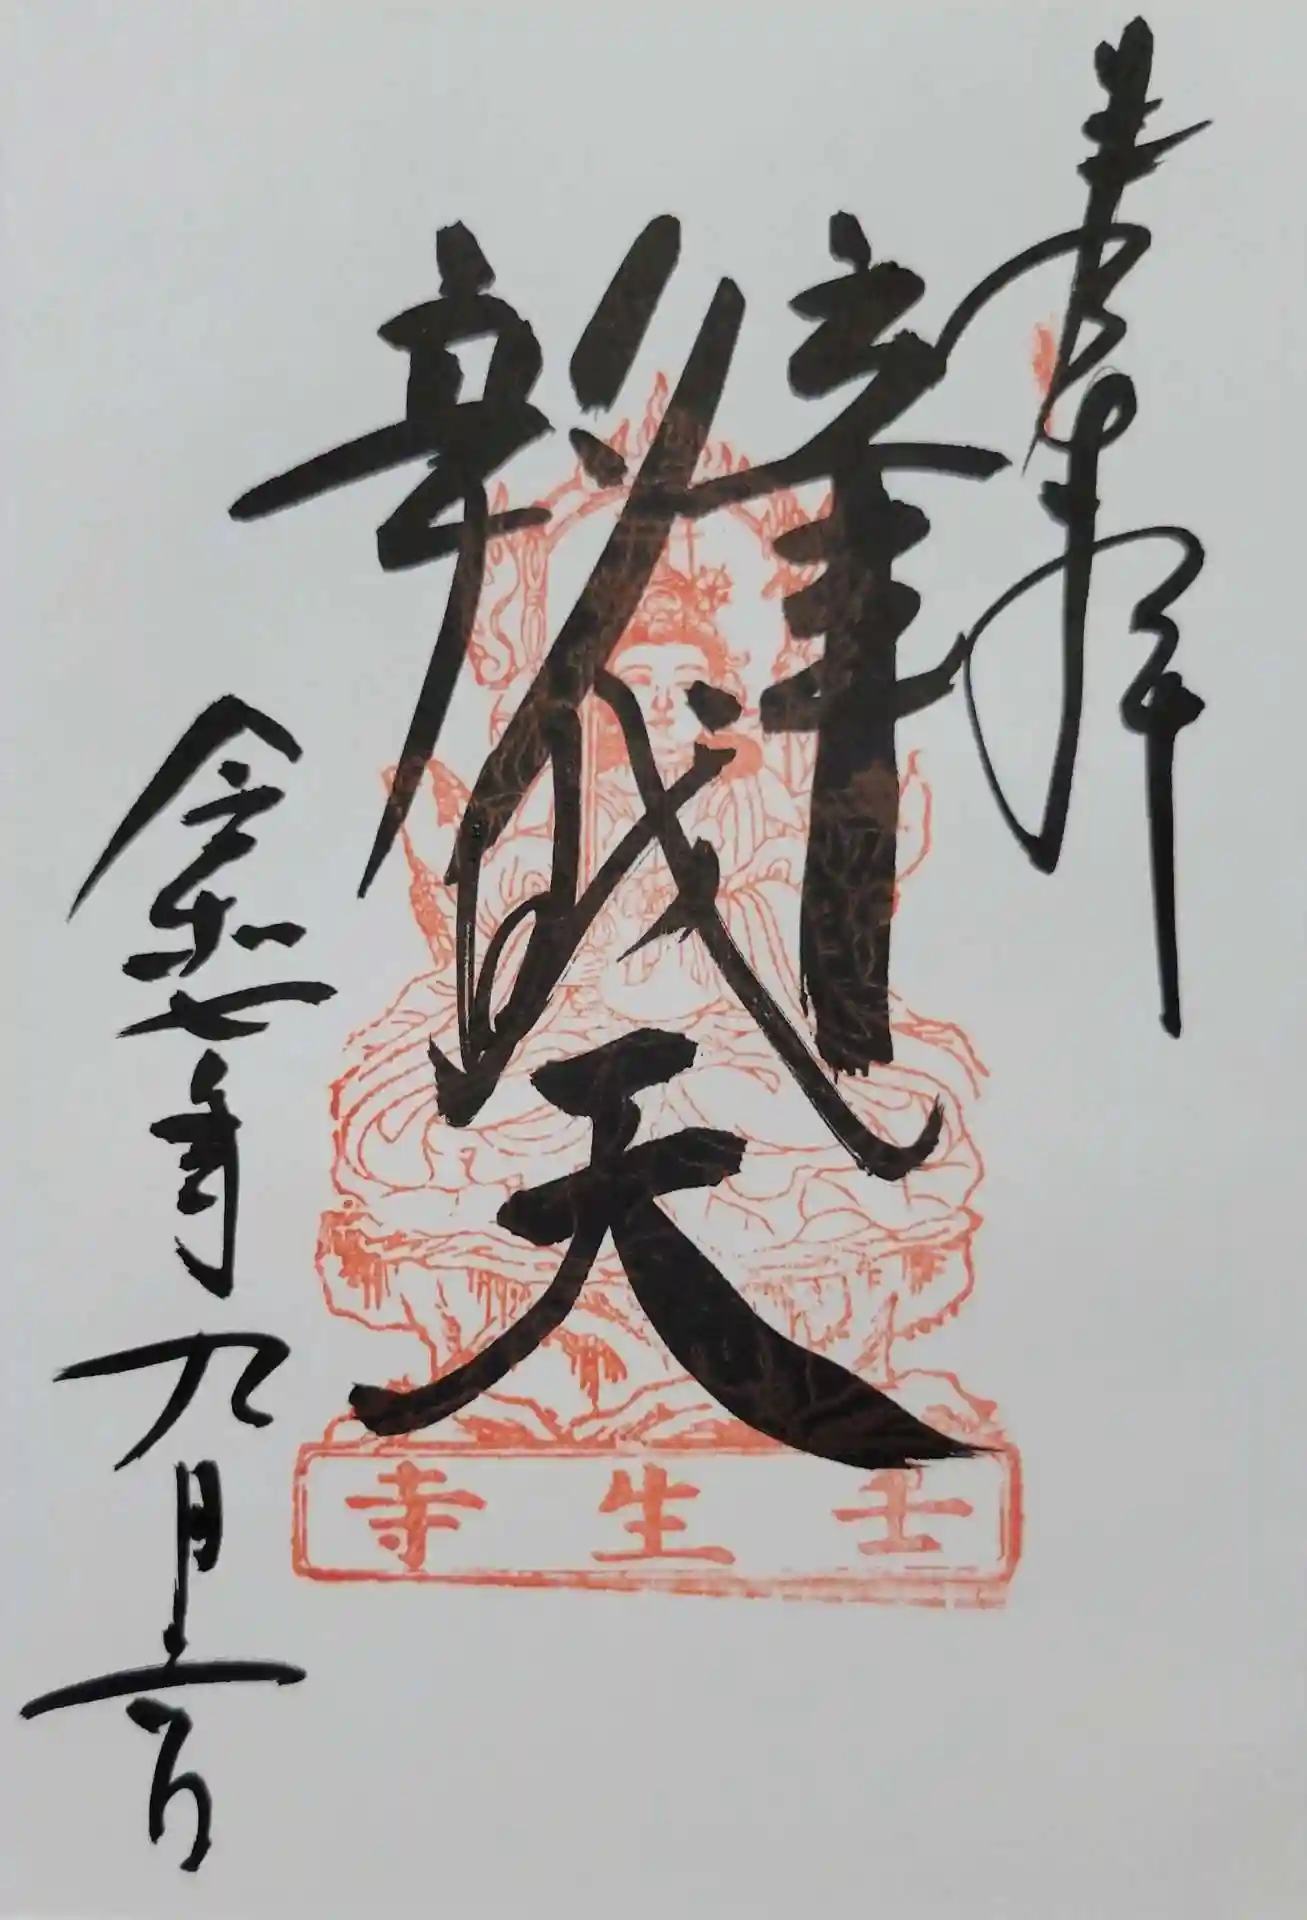 奉拝
辨財天
令和七年九月十一日
壬生寺